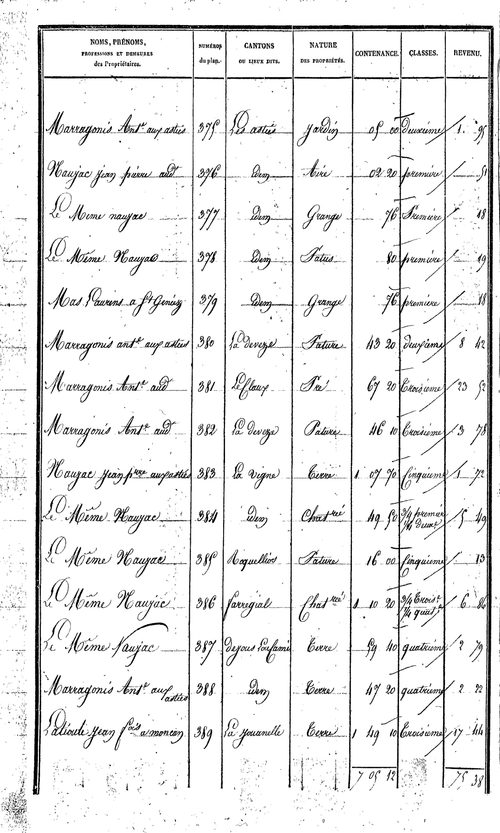 NOMS, PRÉNOMS, PROFESSIONS ET DEMEURES des Propriétaires. NUMÉROS du plan. CANTONS OU LIEUX DITS. NATURE DES PROPRIÉTÉS. CONTENANCE. CLASSES. REVENU.
Marragonis Ant.e aux astiés 375 Les astiés Jardin 05 00 deuxième 1. 95
Naujac jean pierre aud.t 376 idem Aire 02 20 première 51
Le Meme naujac 377 idem Grange 76 Première 18
Le Même Naujac 378 idem Patus 80 première 19
Mas Laurens a St Geniez 379 idem Grange 76 première 18
Marragonis ant.e aux astiés 380 La deveze Pature 43 20 deuxième 8 42
Marragonis Ant.e aud.t 381 Le Claux Pré 67 20 Troisième 23 52
Marragonis Ant.e aud.t 382 La deveze Pature 46 10 Troisième 3 78
Naujac jean p.rre aux astiés 383 La vigne Terre 1 07 70 Cinquième 1 72
Le Même Naujac 384 idem 49 50 3/4 premier 1/4 deux.e 5 49
Le Même Naujac 385 Roquellios Pature 16 00 Cinquième 13
Le Même Naujac 386 farregial 1 10 20 3/4 trois.e 1/4 quat.e 6
Le Même Naujac 387 Terre 59 40 quatrième 2 79
Marragonis Ant.e aux astiés 388 idem Terre 47 20 quatrième 2 22
jean f.ois a moncan 389 La jouanelle Terre 1 49 10 Troisième 17 44
7 05 12 75 38